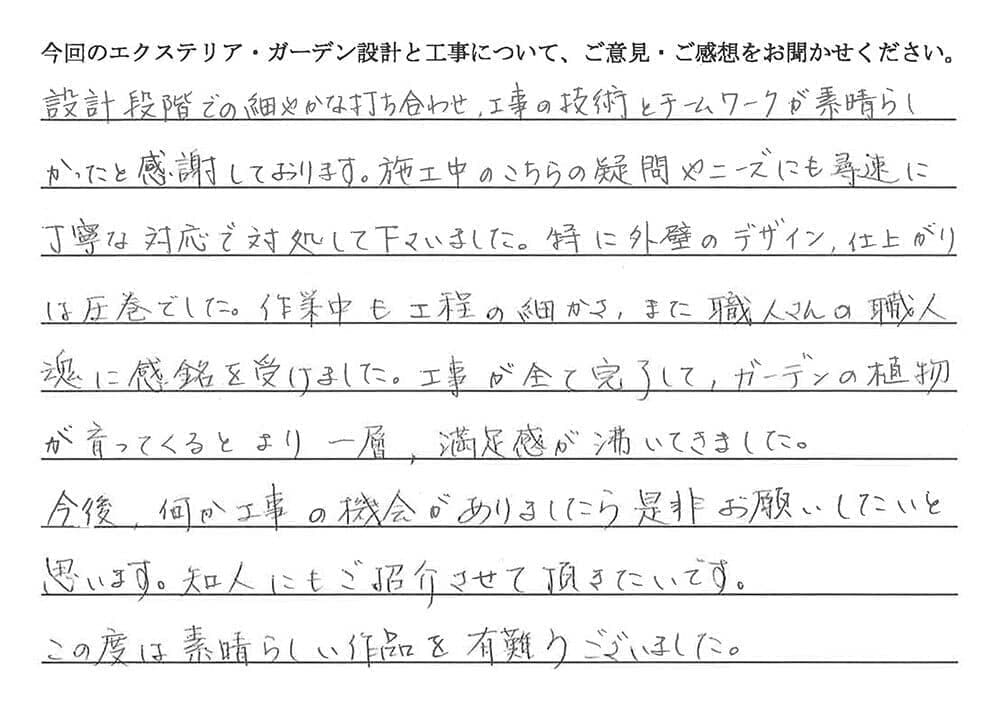 今回のエクステリア・ガーデン設計と工事について、ご意見・ご感想をお聞かせください。
設計段階での細やかな打ち合わせ、工事の技術とチームワークが素晴らし
かったと感謝しております。施工中のこちらの疑問やニーズにも尋速に
丁寧な対応で対処して下さいました。特に外壁のデザイン、仕上がり
は圧巻でした。作業中も工程の細かさ、また職人さんの職人
魂に感銘を受けました。工事が全て完了して、ガーデンの植物
が育ってくるとより一層、満足感が沸いてきました。
今後、何か工事の機会がありましたら是非お願いしたいと
思います。知人にもご紹介させて頂きたいです。
この度は素晴らしい作品を有難うございました。